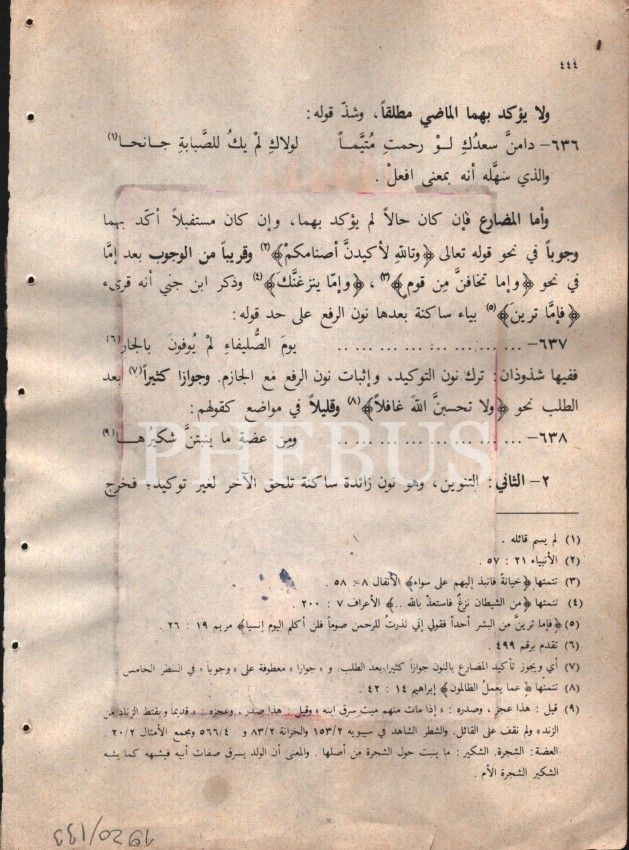 ٤٤٤
ولا يؤكد بهما الماضي مطلقاً، وشذّ قوله:
٦٣٦- دامنَّ سعدُكِ لـوْ رحمتِ مُتيَّماً لولاكِ لمْ يكُ للصَّبابةِ جـانحـا(١)
والذي سَهَّله أنه بمعنى افعلْ .
وأما المضارع فإن كان حالاً لم يؤكد بهما، وإن كان مستقبلاً أكّد بهما
وجوباً في نحو قوله تعالى ﴿وتاللهِ لأكيدنَّ أصنامكمْ﴾(٢) وقريباً من الوجوب بعد إمَّا
في نحو ﴿وإما تخافنَّ مِن قوم﴾(٣)، ﴿وإمّا ينزغنَّك﴾(٤) وذكر ابن جني أنه قرىء
﴿فإمَّا ترينَ﴾(٥) بياء ساكنة بعدها نون الرفع على حد قوله:
٦٣٧- ... ... ... ... ... ... يومَ الصُّليفاءِ لمْ يُوفونَ بالجارِ(٦)
ففيها شذوذان: ترك نون التوكيد، وإثبات نون الرفع مع الجازم. وجوازا كثيراً(٧) بعد
الطلب نحو ﴿ولا تحسبنَّ اللهَ غافلاً﴾(٨) وقليلاً في مواضع كقولهم:
٦٣٨- ... ... ... ... ... ... ومن عضةٍ ما ينبتنَّ شكيرهـا(٩)
٢- الثاني: التنوين، وهو نون زائدة ساكنة تلحق الآخر لغير توكيد؛ فخرج
(١) لم يسم قائله .
(٢) الأنبياء ٢١ : ٥٧ .
(٣) تتمتها ﴿خيانةً فانبذ إليهم على سواء﴾ الأنفال ٨ : ٥٨ .
(٤) تتمتها ﴿من الشيطان نزغٌ فاستعذْ بالله ..﴾ الأعراف ٧ : ٢٠٠ .
(٥) ﴿فإما ترينَّ من البشر أحداً فقولي إني نذرتُ للرحمن صوماً فلن أكلم اليوم إنسيا﴾ مريم ١٩ : ٢٦ .
(٦) تقدم برقم ٤٩٩ .
(٧) أي ويجوز تأكيد المضارع بالنون جوازا كثيرا بعد الطلب، و «جوازا» معطوفة على «وجوبا» في السطر الخامس
(٨) تتمتها ﴿عما يعملُ الظالمون﴾ إبراهيم ١٤ : ٤٢ .
(٩) قيل : هذا عجز ، وصدره : «إذا مات منهم ميت سرق ابنه» وقيل : هذا صدر ، وعجزه : «قديماً ويقتط الزناد من
الزند» ولم نقف على القائل. والشطر الشاهد في سيبويه ١٥٣/٢ والخزانة ٨٣/٢ و ٥٦٦/٤ ومجمع الأمثال ٢٠/٢ .
العضة: الشجرة. الشكير: ما ينبت حول الشجرة من أصلها . والمعنى أن الولد يسرق صفات أبيه فيشبهه كما يشبه
الشكير الشجرة الأم .
PHEBUS
1920/133